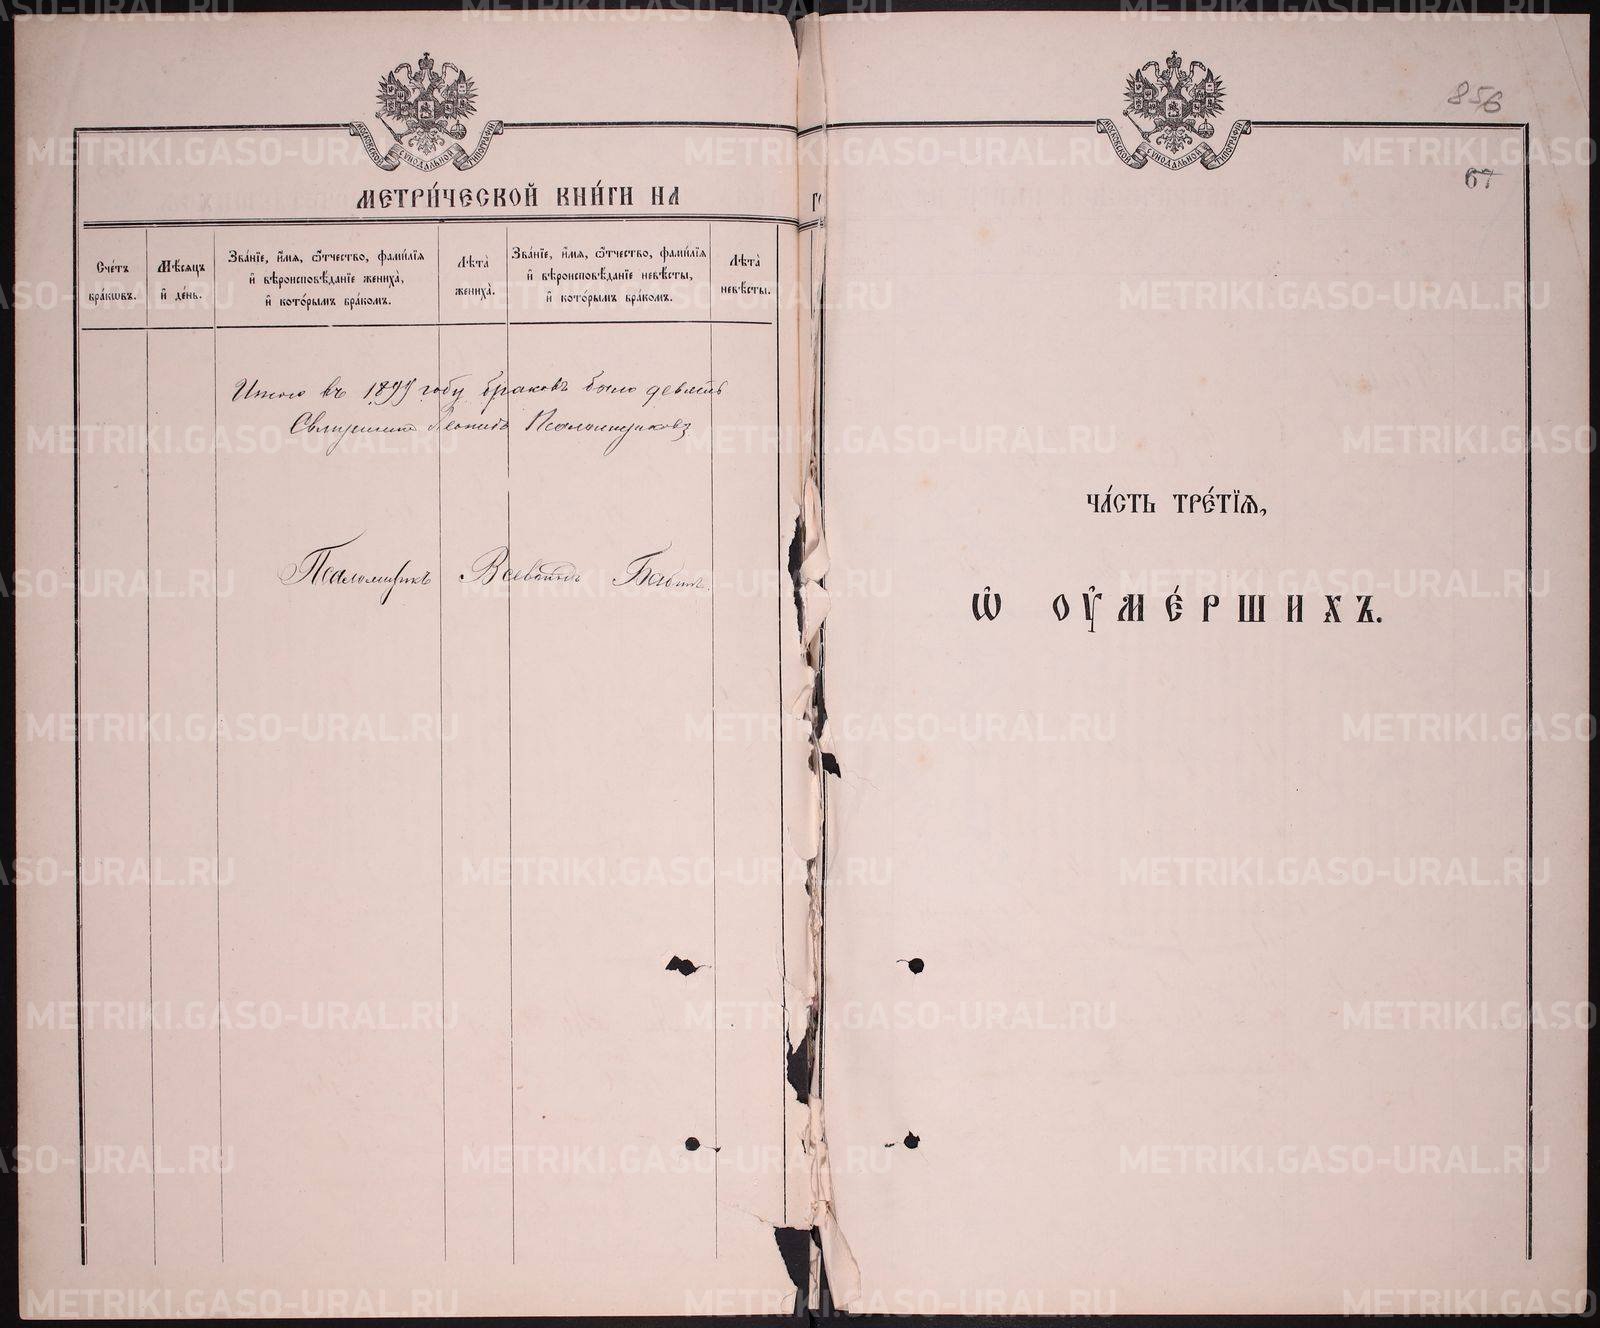 МОСКОВСКОЙ СѴНОДАЛЬНОЙ ТИПОГРАФІИ
МЕТРИ́ЧЕСКОЙ КНИ́ГИ НА
Сче́тъ бра́кѡвъ.
Мѣ́сѧцъ и҆ де́нь.
Зва́нїе, и҆́мѧ, ѻ҆́тчество, фами́лїѧ
и҆ вѣроисповѣ́данїе жениха̀,
и҆ кото́рымъ бра́комъ.
Лѣ́та̀ жениха̀.
Зва́нїе, и҆́мѧ, ѻ҆́тчество, фами́лїѧ
и҆ вѣроисповѣ́данїе невѣ́сты,
и҆ кото́рымъ бра́комъ.
Лѣ́та̀ невѣ́сты.
Итого въ 1899 году браковъ было девять
Священникъ Леонидъ Псаломщиковъ
Псаломщикъ Всеволодъ Бабинъ
МОСКОВСКОЙ СѴНОДАЛЬНОЙ ТИПОГРАФІИ
856
67
ЧА́СТЬ ТРЕ́ТЇѦ,
Ѡ҆ ОУ҆МЕ́РШИХЪ.
METRIKI.GASO-URAL.RU